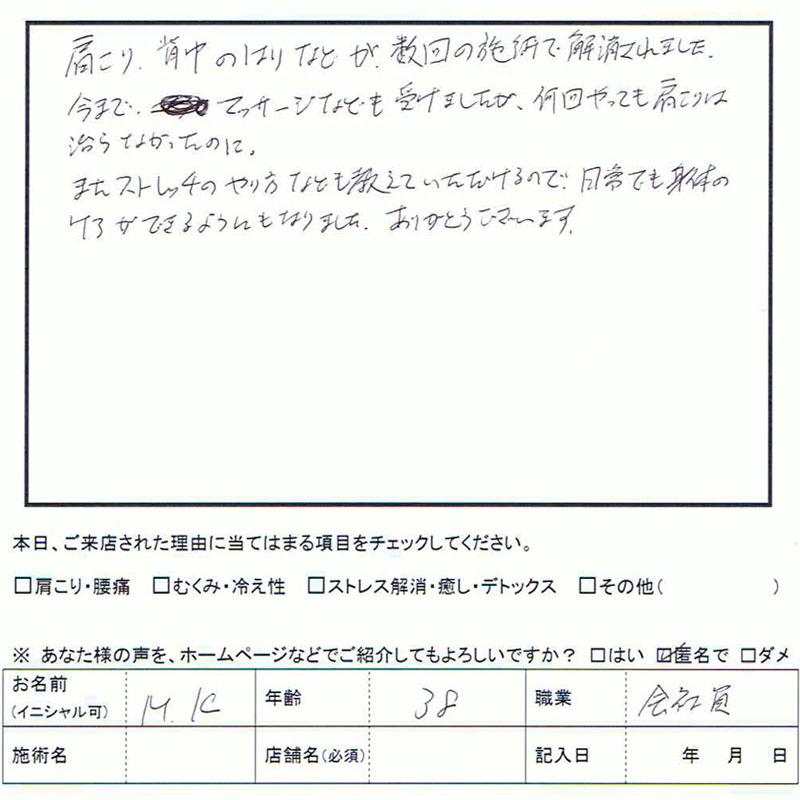 肩こり、背中のはりなどが、数回の施術で解消されました。
今まで、マッサージなども受けましたが、何回やっても肩こりは
治らなかったのに。
またストレッチのやり方なども教えていただけるので、日常でも身体の
ケアができるようにもなりました。ありがとうございます。
本日、ご来店された理由に当てはまる項目をチェックしてください。
□肩こり・腰痛 □むくみ・冷え性 □ストレス解消・癒し・デトックス □その他( )
※ あなた様の声を、ホームページなどでご紹介してもよろしいですか？ □はい ☑匿名で □ダメ
お名前 (イニシャル可) M.K 年齢 38 職業 会社員
施術名 店舗名(必須) 記入日 年 月 日